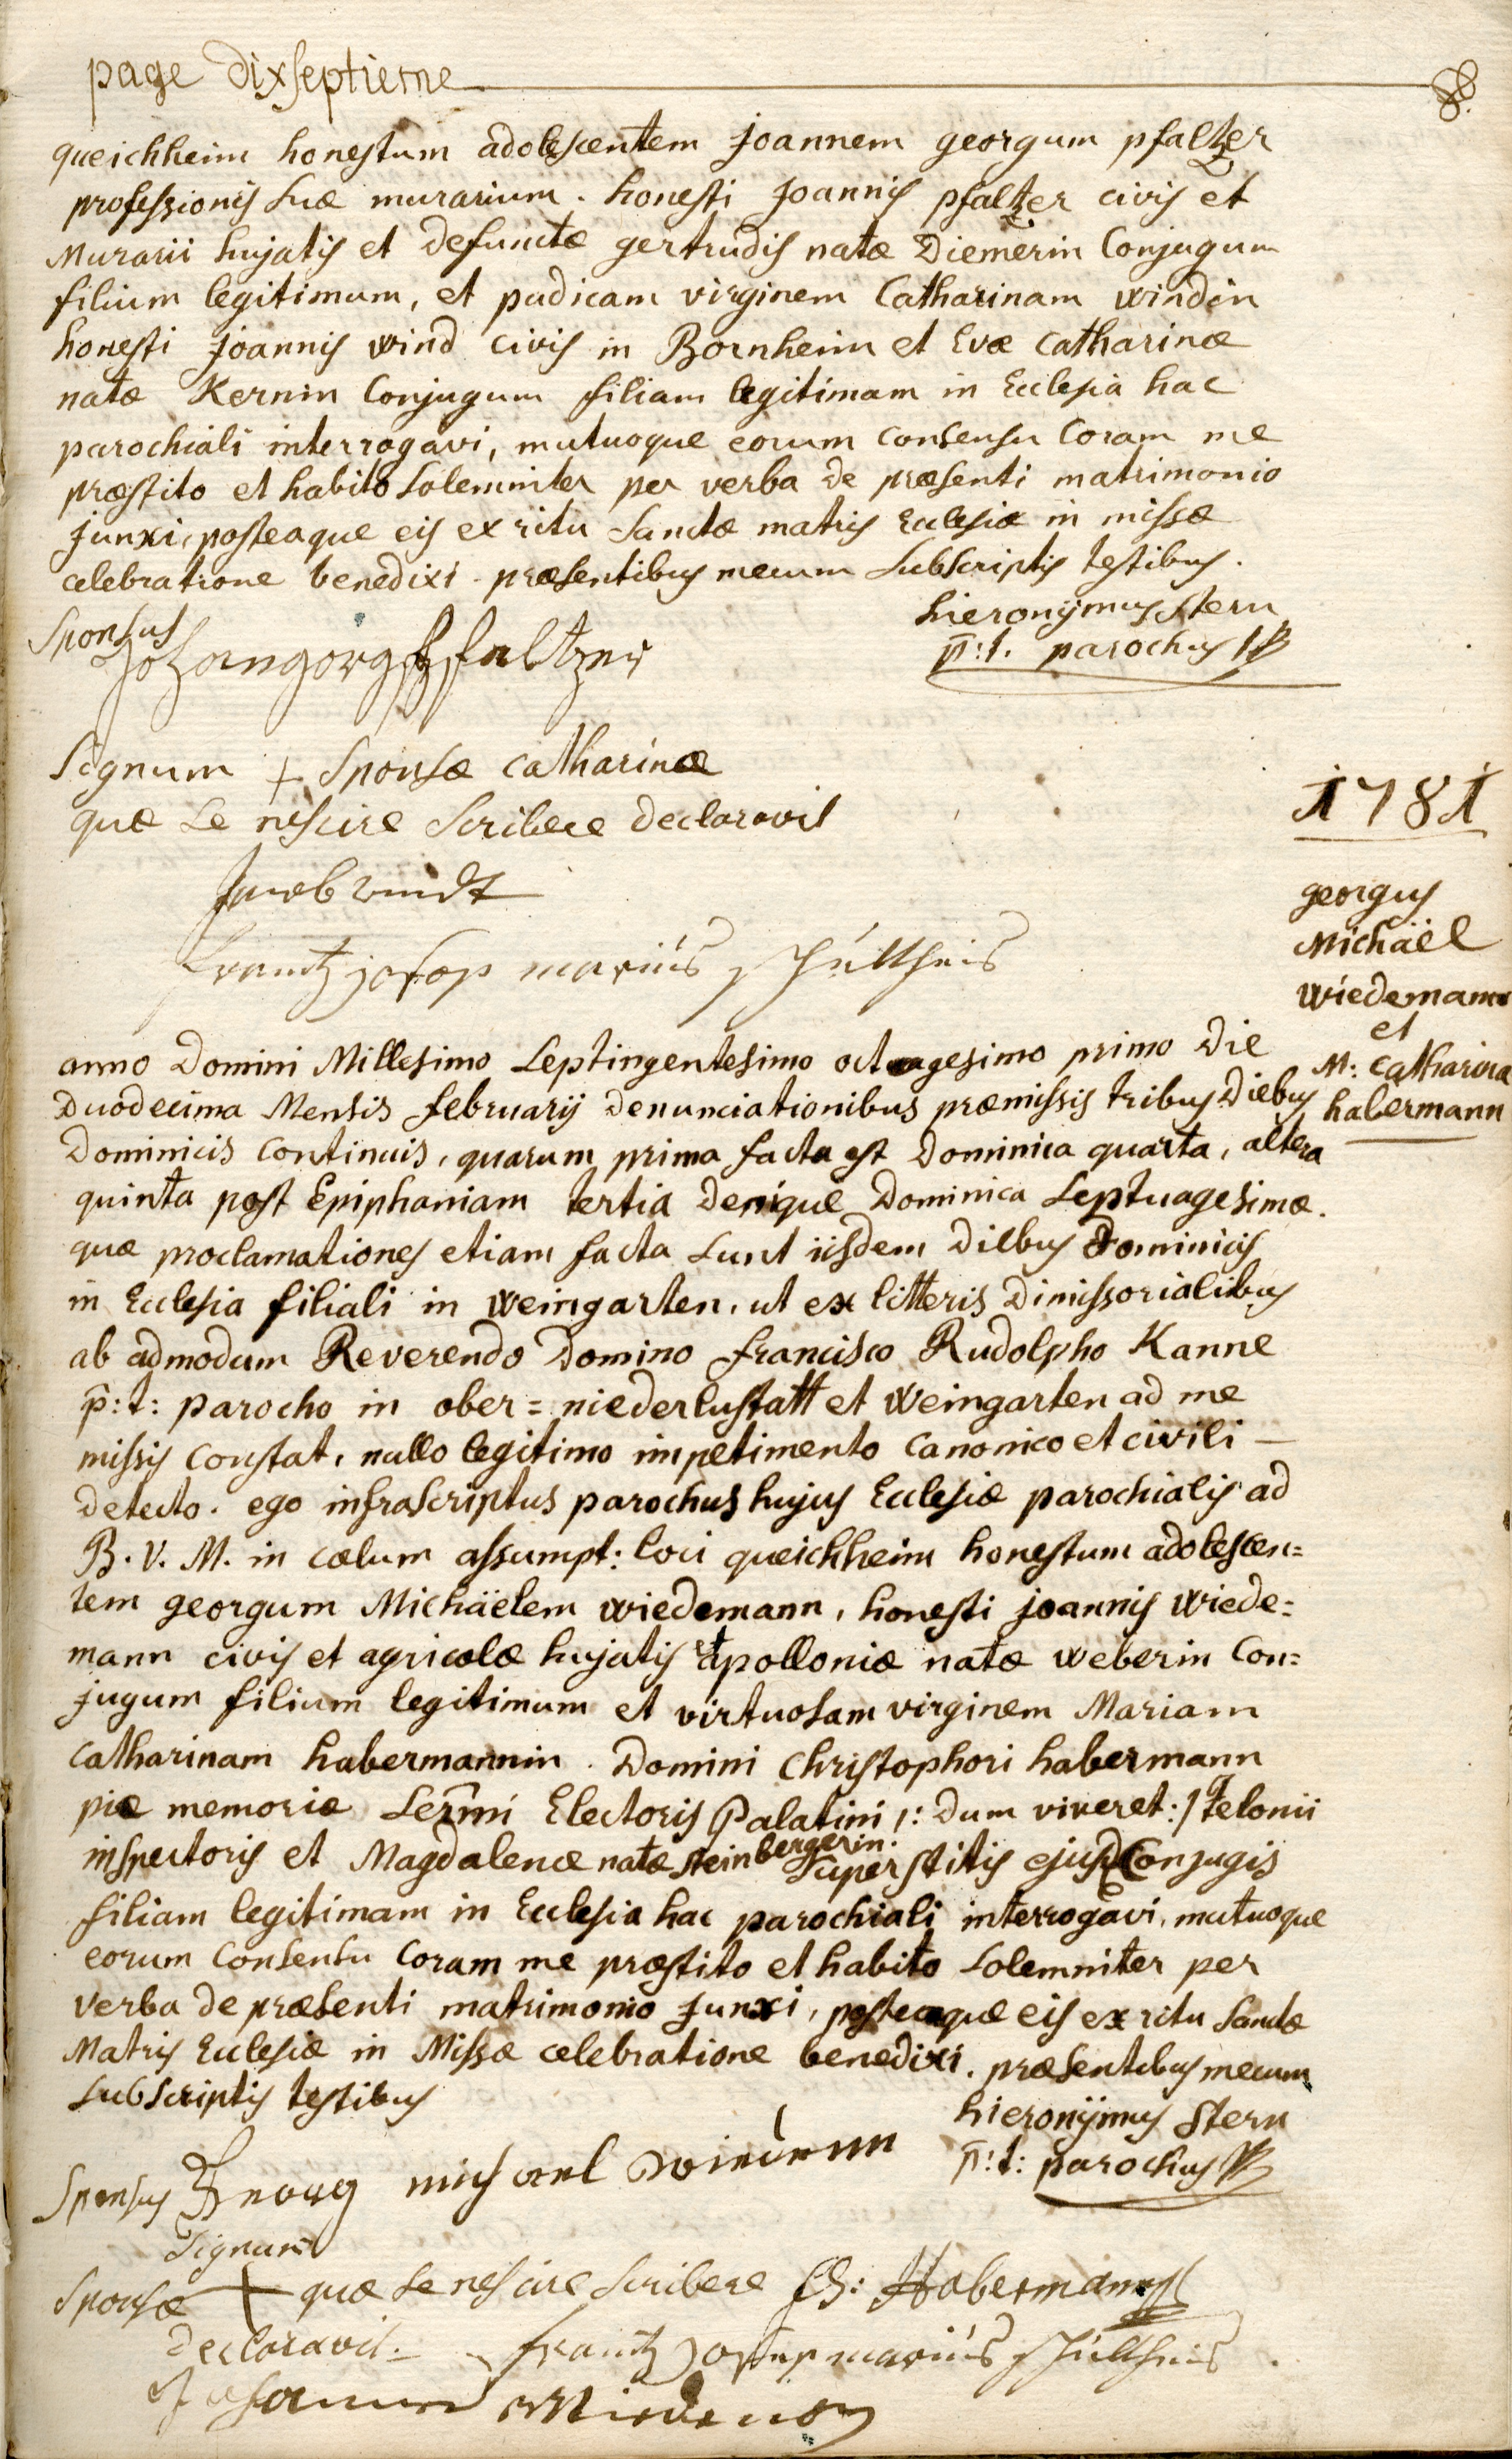 page dixseptieme
queichheim honestum adolescentem joannem georgum pfaltzer
professionis suæ murarium. honesti joannis pfaltzer civis et
Murarii hujatis et defunctæ gertrudis natæ Diemerin Conjugum
filium legitimum, et pudicam virginem Catharinam windin
honesti joannis wind civis in Bornheim et Evæ Catharinæ
natæ Kernin Conjugum filiam legitimam in Ecclesia hac
parochiali interrogavi, mutuoque eorum consensu Coram me
præstito et habito solemniter per verba de præsenti matrimonio
junxi, posteaque eis ex ritu Sanctæ matris Ecclesiæ in missæ
celebratione benedixi. præsentibus mecum subscriptis testibus.
hieronÿmus Stern
p̄:t. parochus
Sponsus
Johangorg Pfaltzer
Signum + Sponsæ Catharinæ
quæ se nescire scribere declaravit
Jacob windt
frantz josep marius schultheis
1781
georgus
Michaël
wiedemann
et
M: Catharina
habermann
anno Domini Millesimo septingentesimo octuagesimo primo die
Duodecima Mensis februarij denunciationibus præmissis tribus diebus
Dominicis continuis, quarum prima facta est Dominica quarta, altera
quinta post Epiphaniam tertia denique Dominica septuagesimæ.
quæ proclamationes etiam facta sunt iisdem diebus Dominicis
in Ecclesia filiali in weingarten, ut ex litteris dimissorialibus
ab admodum Reverendo Domino francisco Rudolpho Kanne
p̄:t: parocho in ober= niederlustatt et weingarten ad me
missis constat, nullo legitimo impetimento canonico et civili —
detecto. ego infrascriptus parochus hujus Ecclesiæ parochialis ad
B. V. M. in cælum assumpt: loci queichheim honestum adolescen=
tem georgum Michäelem wiedemann, honesti joannis wiede=
mann civis et agricolæ hujatis et apolloniæ natæ weberin Con=
jugum filium legitimum et virtuosam virginem Mariam
Catharinam habermannin. Domini Christophori habermann
piæ memoriæ Sermi Electoris Palatini /: dum viveret :/ telonii
inspectoris et Magdalenæ natæ steinbergerin. superstitis ejusd Conjugis
filiam legitimam in Ecclesia hac parochiali interrogavi, mutuoque
eorum Consensu Coram me præstito et habito solemniter per
verba de præsenti matrimonio junxi, posteaque eis ex ritu Sanctæ
Matris Ecclesiæ in Missæ celebratione benedixi. præsentibus mecum
subscriptis testibus
hieronÿmus Stern
p̄:t: parochus
Sponsus Georg michael
Signum
Sponsæ + quæ se nescire scribere Habermann
declaravit. frantz Josep marius schultheis